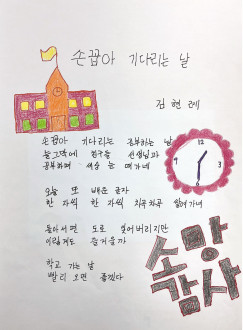 손꼽아 기다리는 날
김현례
손꼽아 기다리는 공부하는 날
늘그막에 친구들 선생님과
공부하며 세월 가네
오늘 또 배운 글자
한 자씩 한 자씩 차곡차곡 잃어가네
돌아서면 도로 잊어버리지만
이렇게도 즐거울까
학교 가는 날
빨리 오면 좋겠다
12
3
6
9
소망
감사